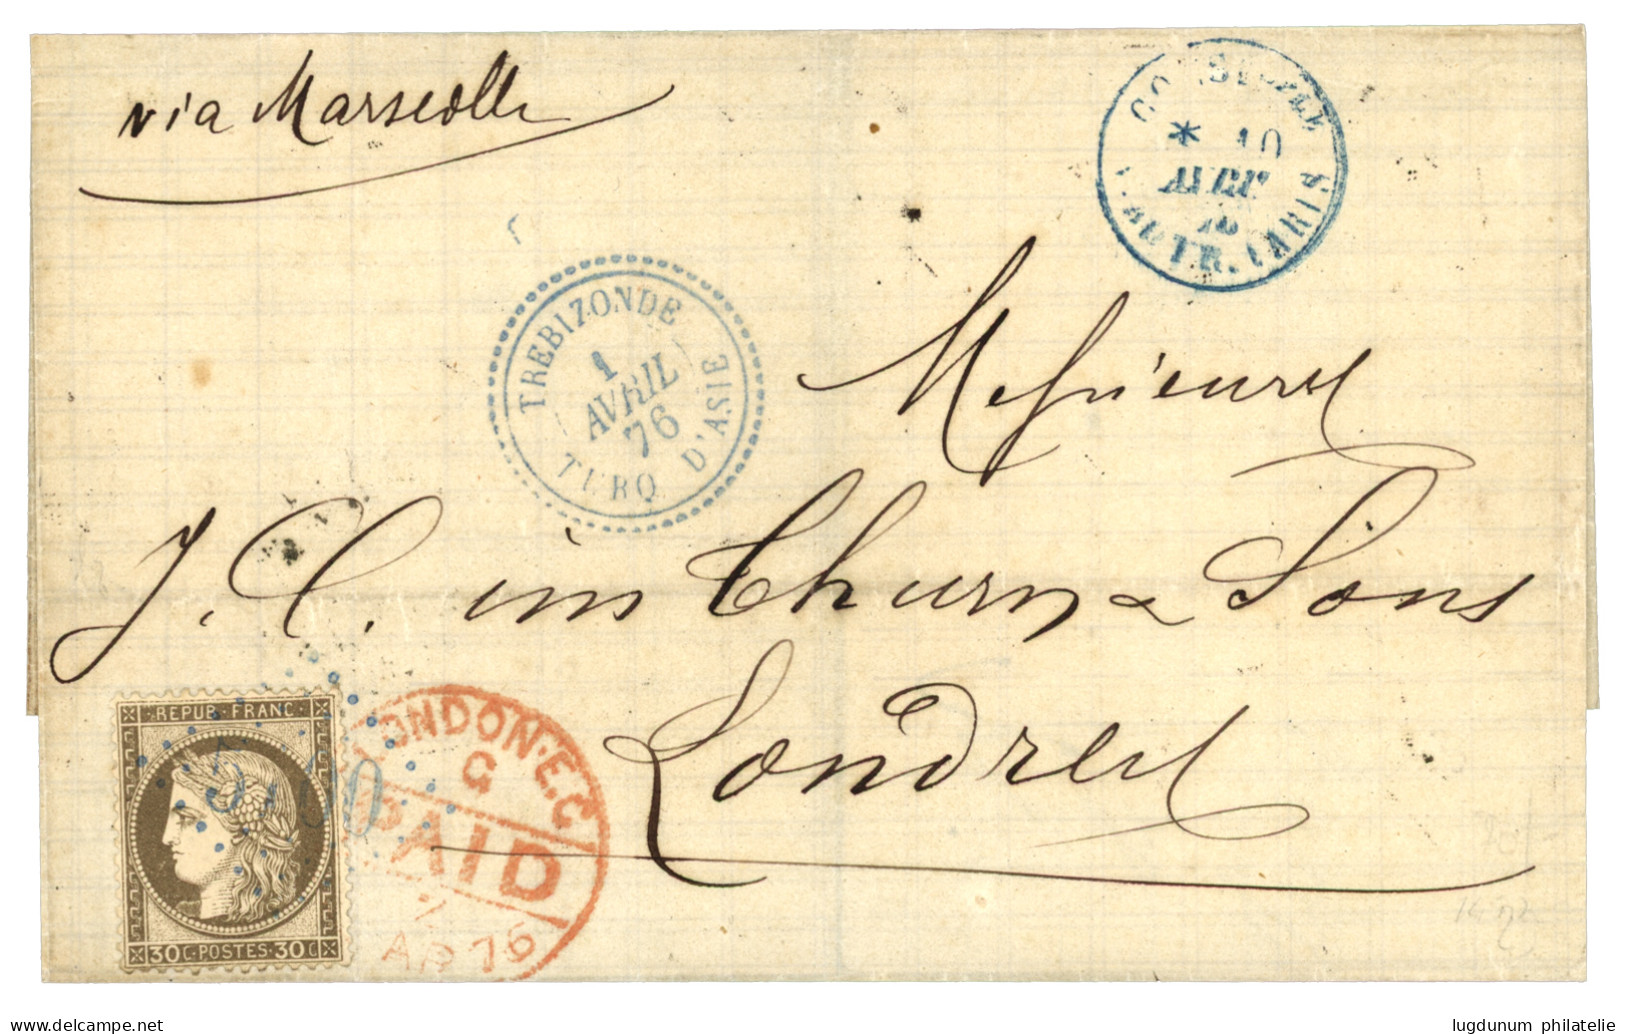 via Marseille
* 10
TREBIZONDE
1
AVRIL
76
TURQ D'ASIE
Messieurs
J. C. im Thurn & Sons
Londres
REPUB. FRANC.
30 C. POSTES. 30 C
LONDON. E.C
G
PAID
AP 76
lugdunum philatelie
www.delcampe.net